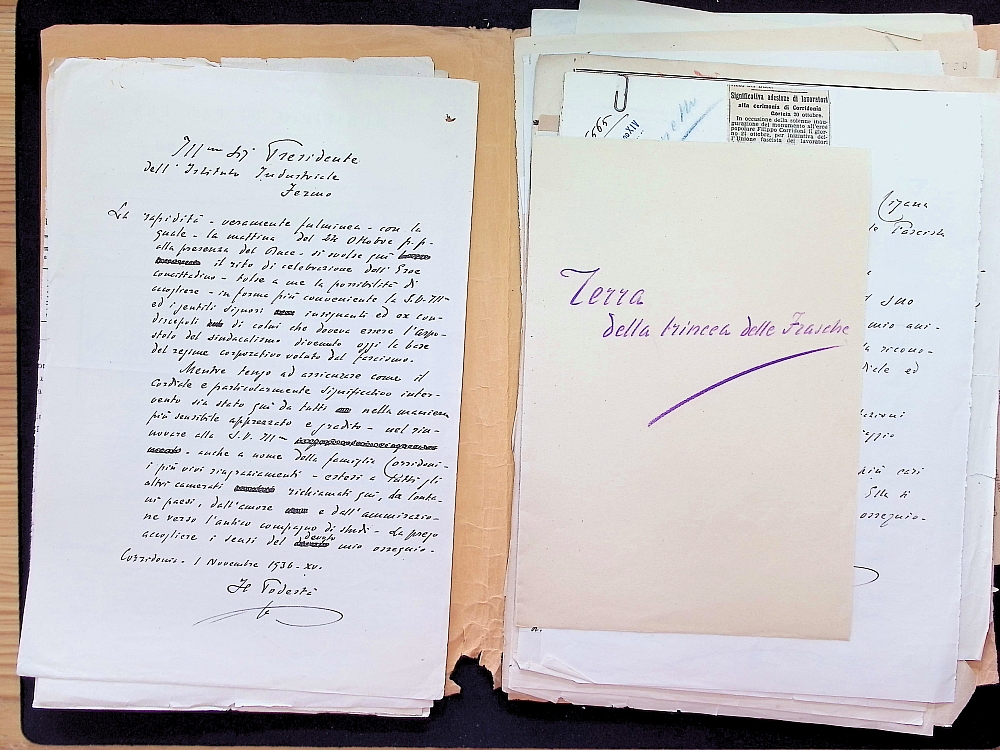 Ill.mo Sig. Presidente
dell'Istituto Industriale
Fermo
La rapidità - veramente fulminea - con la
quale - la mattina del 24 Ottobre p.p.
alla presenza del Duce - si svolse qui
il rito di celebrazione dell'Eroe
concittadino - tolse a me la possibilità di
accogliere - in forma più conveniente la S.V. Ill-
ed i gentili signori insegnanti ed ex con-
discepoli di colui che doveva essere l'apo-
stolo del sindacalismo divenuto oggi la base
del regime corporativo voluto dal fascismo.
Mentre tengo ad assicurare come il
cordiale e particolarmente significativo inter-
vento sia stato qui da tutti nella maniera
più sensibile apprezzato e gradito - nel rin-
novare alla S.V. Ill-
anche a nome della famiglia Corridoni -
i più vivi ringraziamenti - estesi a tutti gli
altri camerati richiamati qui, da lonta-
ni paesi, dall'amore e dall'ammirazio-
ne verso l'antico compagno di studi - La prego
accogliere i sensi del devoto mio ossequio -
Corridonia - 1 Novembre 1936 - XV.
Il Podestà
Significativa adesione di lavoratori
alla cerimonia di Corridonia
Gorizia 20 ottobre.
In occasione della solenne inau-
gurazione del monumento all'eroe
popolare Filippo Corridoni il gior-
no 24 ottobre, per iniziativa del-
l'Unione fascista dei lavoratori
565
XIV
Terra
della trincea delle Frasche
Fascista
suo
mio ani-
ricono-
ed
più cari
Ella i
ossequio-